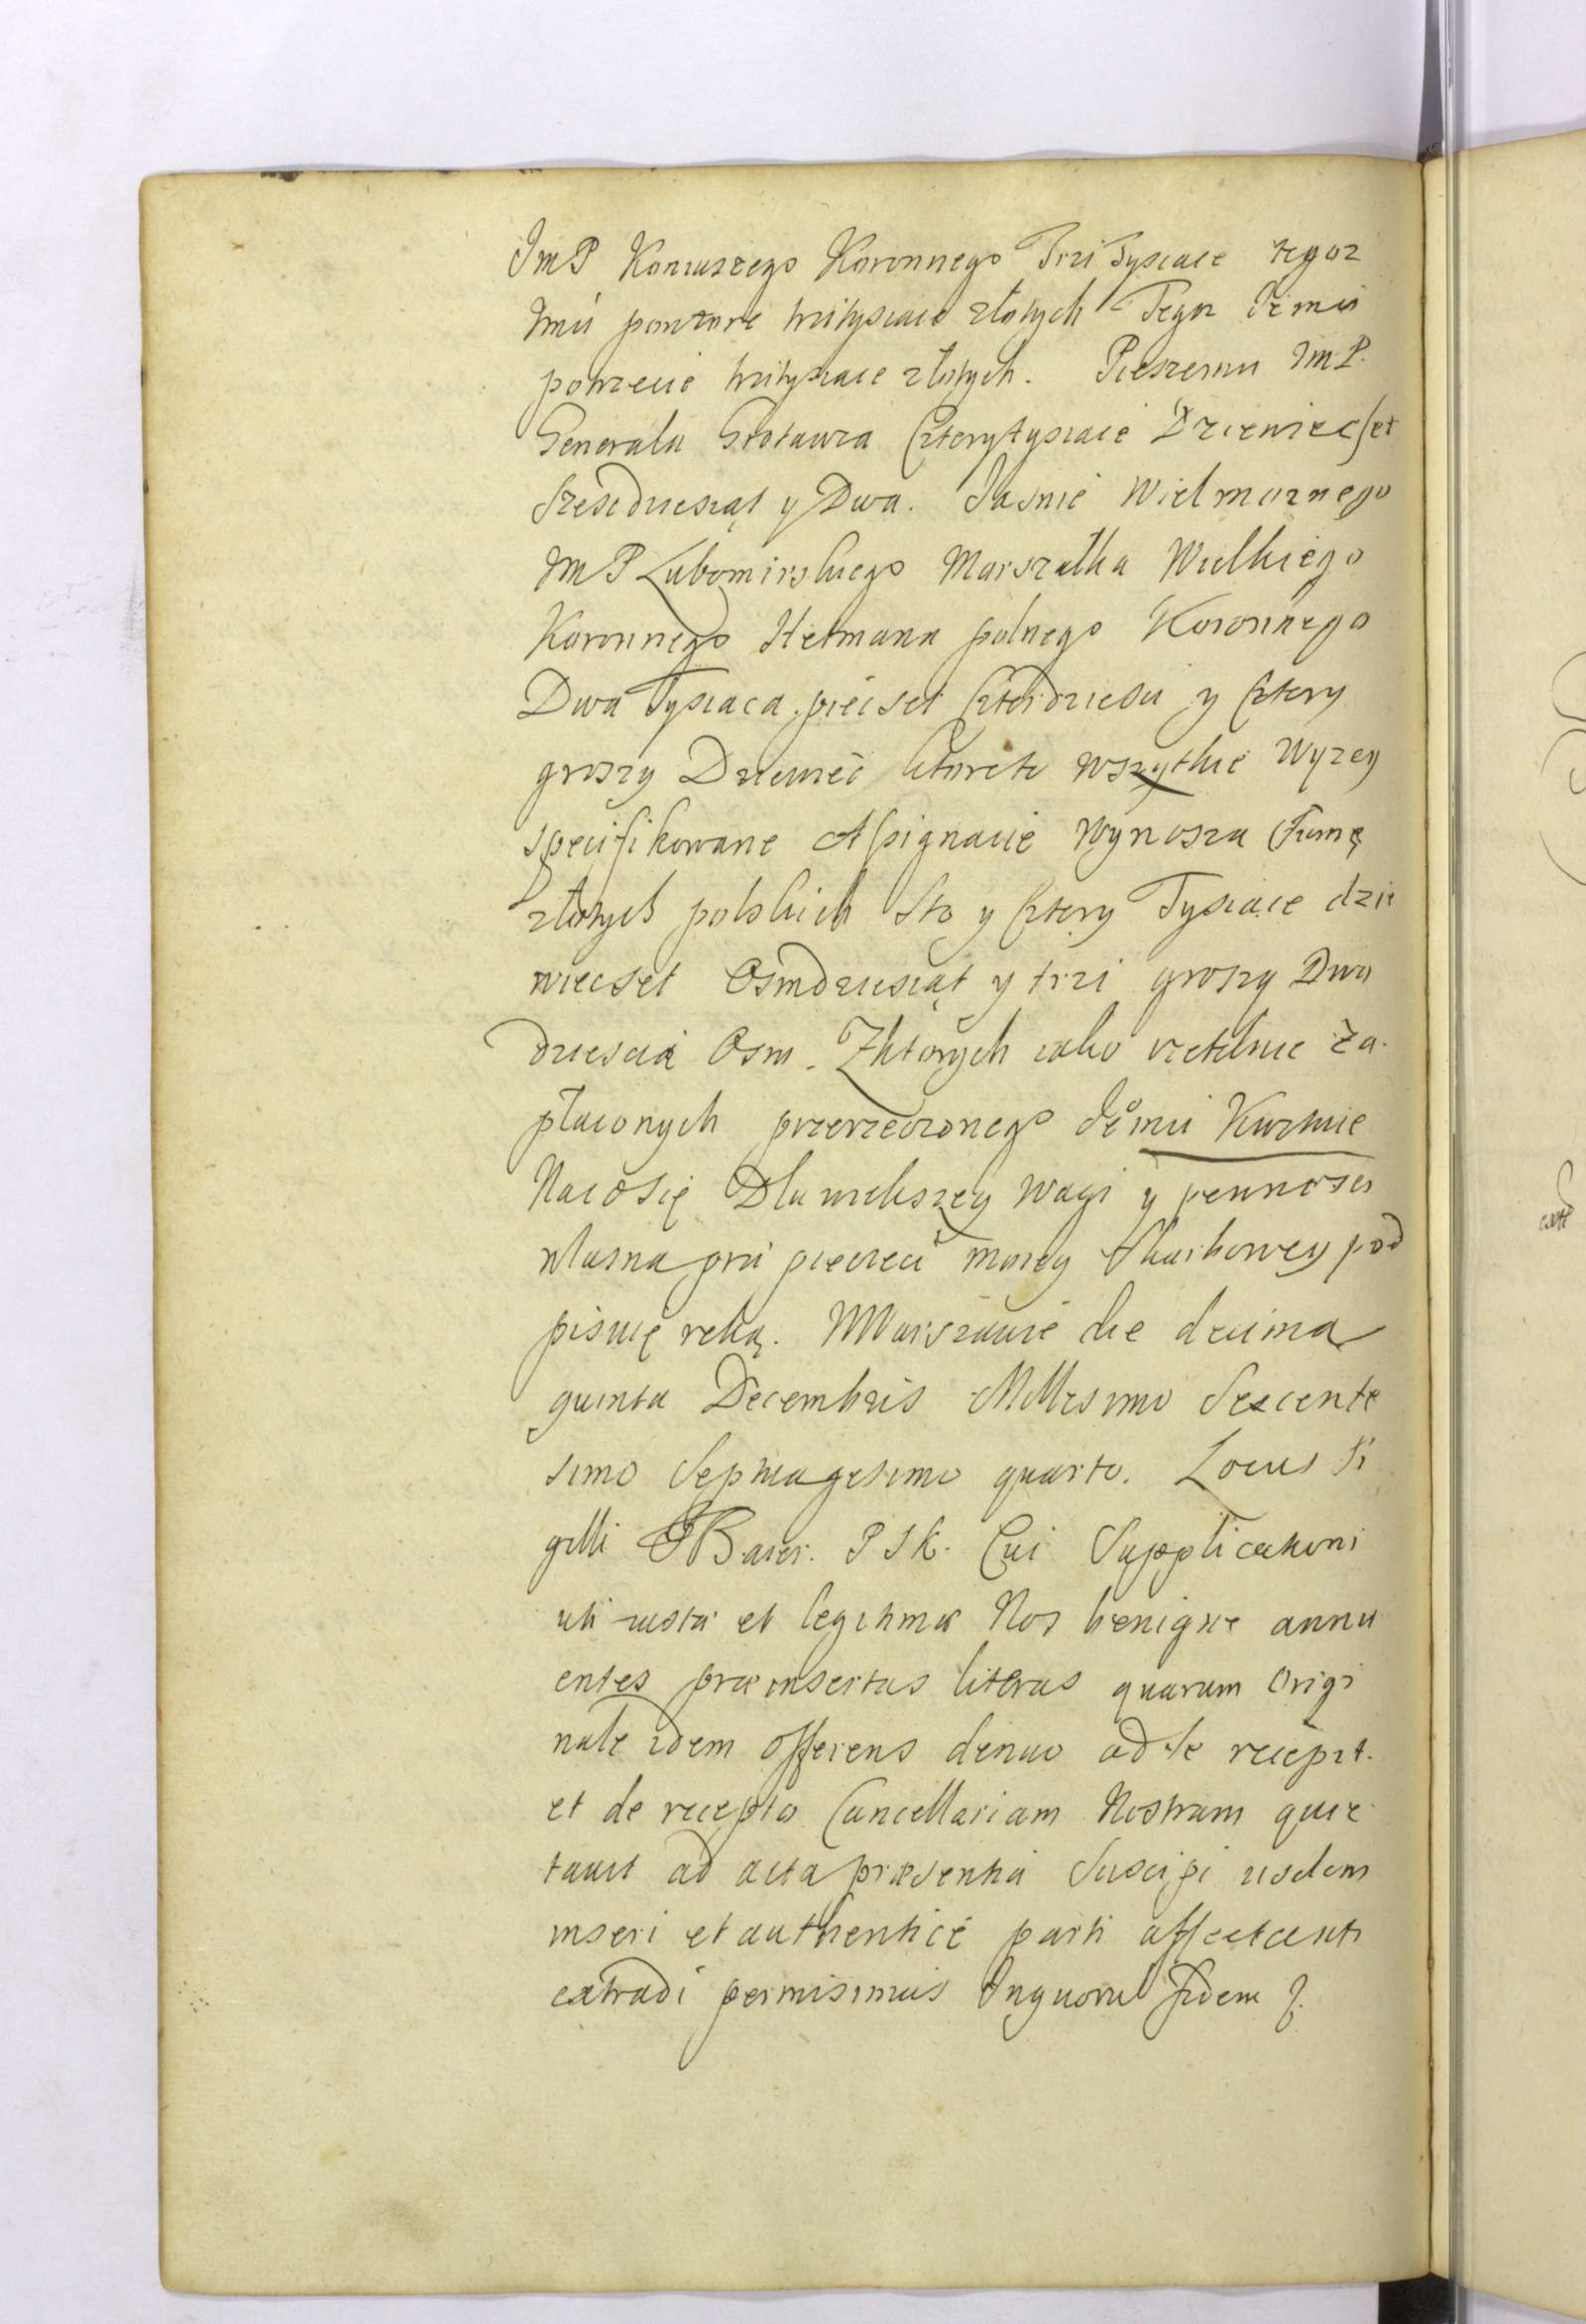 ImP Koniuszego Koronnego Trzi Tysiace tegoz
Imći powtore trzitysiace złotych Tegoz Ie̊mći
potrzecie trzitysiace złotych. Pieszemu ImP.
Generała Czterytysiace Dziewiecset
Szescdziesiąt y Dwa. Jasnie Wielmoznego
ImP Lubomirskiego Marszałka Wielkiego
Koronnego Hetmana polnego Koronnego
Dwa Tysiaca piećset Czterdziesci y Cztery
groszy Dziewieć ktorete wszytkie wyzey
specifikowane Assignacie wynosza Sumę
złotych polskich Sto y Cztery Tysiące dzie
wiecset Osmdziesiąt y trzi groszy Dwa
dziescia Osm. Zktorych iako rzetelnie Za
płaconych przerzeczonego Ie̊mci Kwituie
Naco się Dla wiekszey wagi y pewnosci
własna przi pieczeci moiey Skarbowey pod
pisuię reką. WWarszawie die decima
quinta Decembris Millesimo Sexcente
simo Septuagesimo quarto. Locus Si
gilli Cui Supplicationi
uti iustæ et legitimæ Nos benigne annu
entes præinsertas literas quarum Origi
nale idem offerens denuo ad se recepit
et de recepto Cancellariam Nostram quie
tauit ad acta præsentia Suscipi iisdem
inseri et authentice parti affectanti
extradi permisimus Inquorū fidem &.